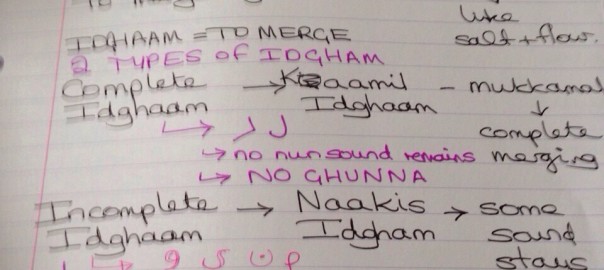 like
IDHAAM = TO MERGE salt + flour.
2 TYPES OF IDGHAM
Complete → Kaamil - mukkamal
Idghaam Idghaam ↓
↳ ر ل complete
↳ no nun sound remains merging
↳ NO GHUNNA
Incomplete → Naakis → some
Idghaam Idgham sound
↳ و ي ن م stays